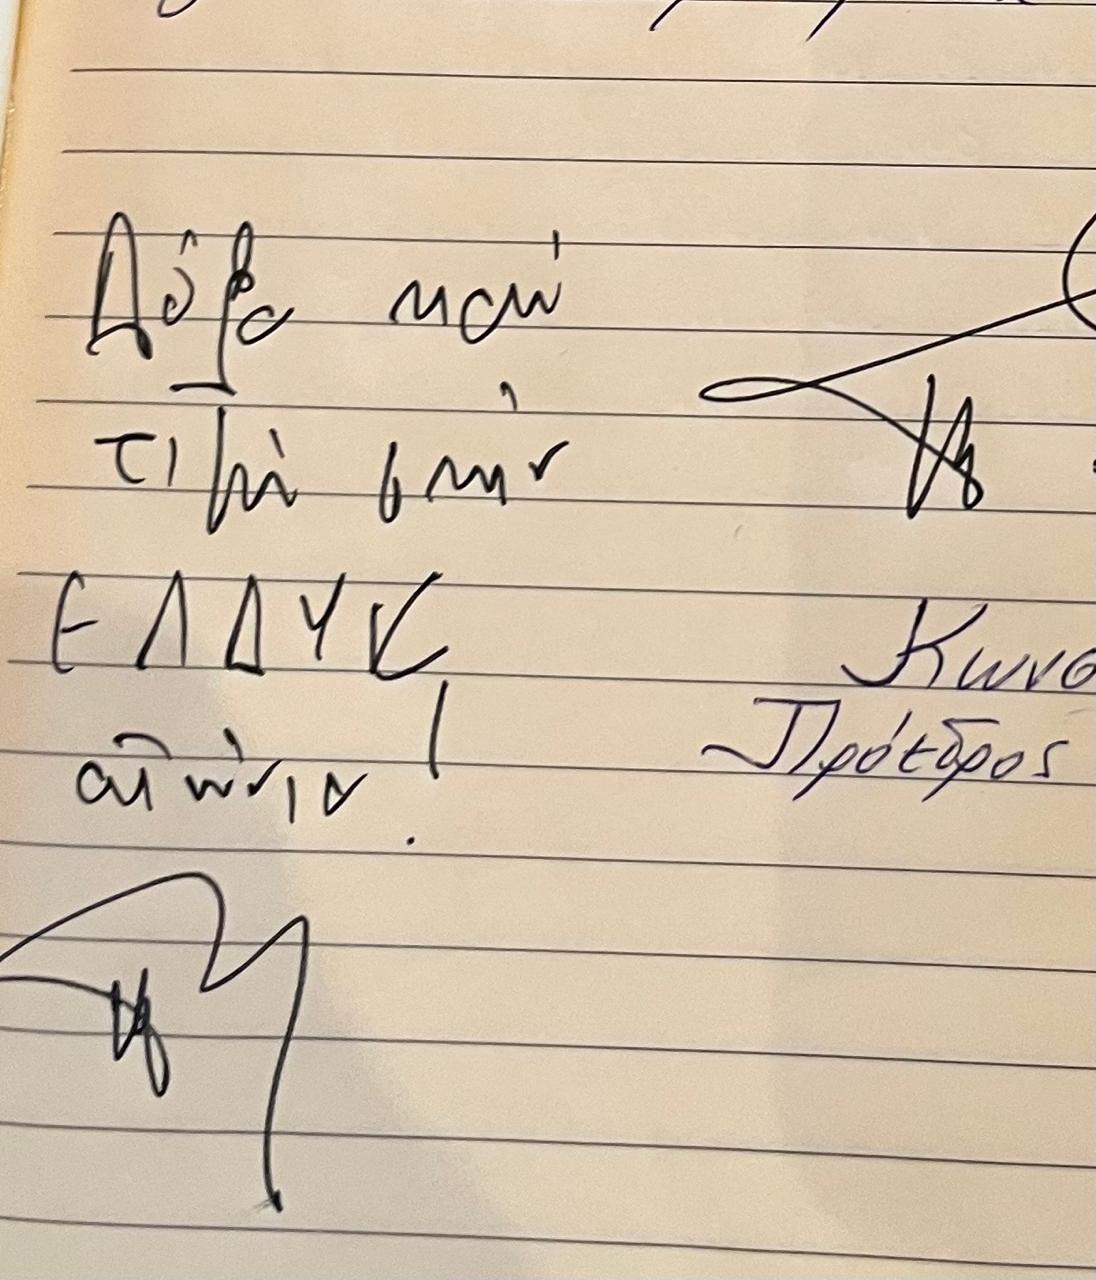 Δόξα και
τιμή στην
ΕΛΔΥΚ
αιώνια!
Κωνσ
Πρόεδρος